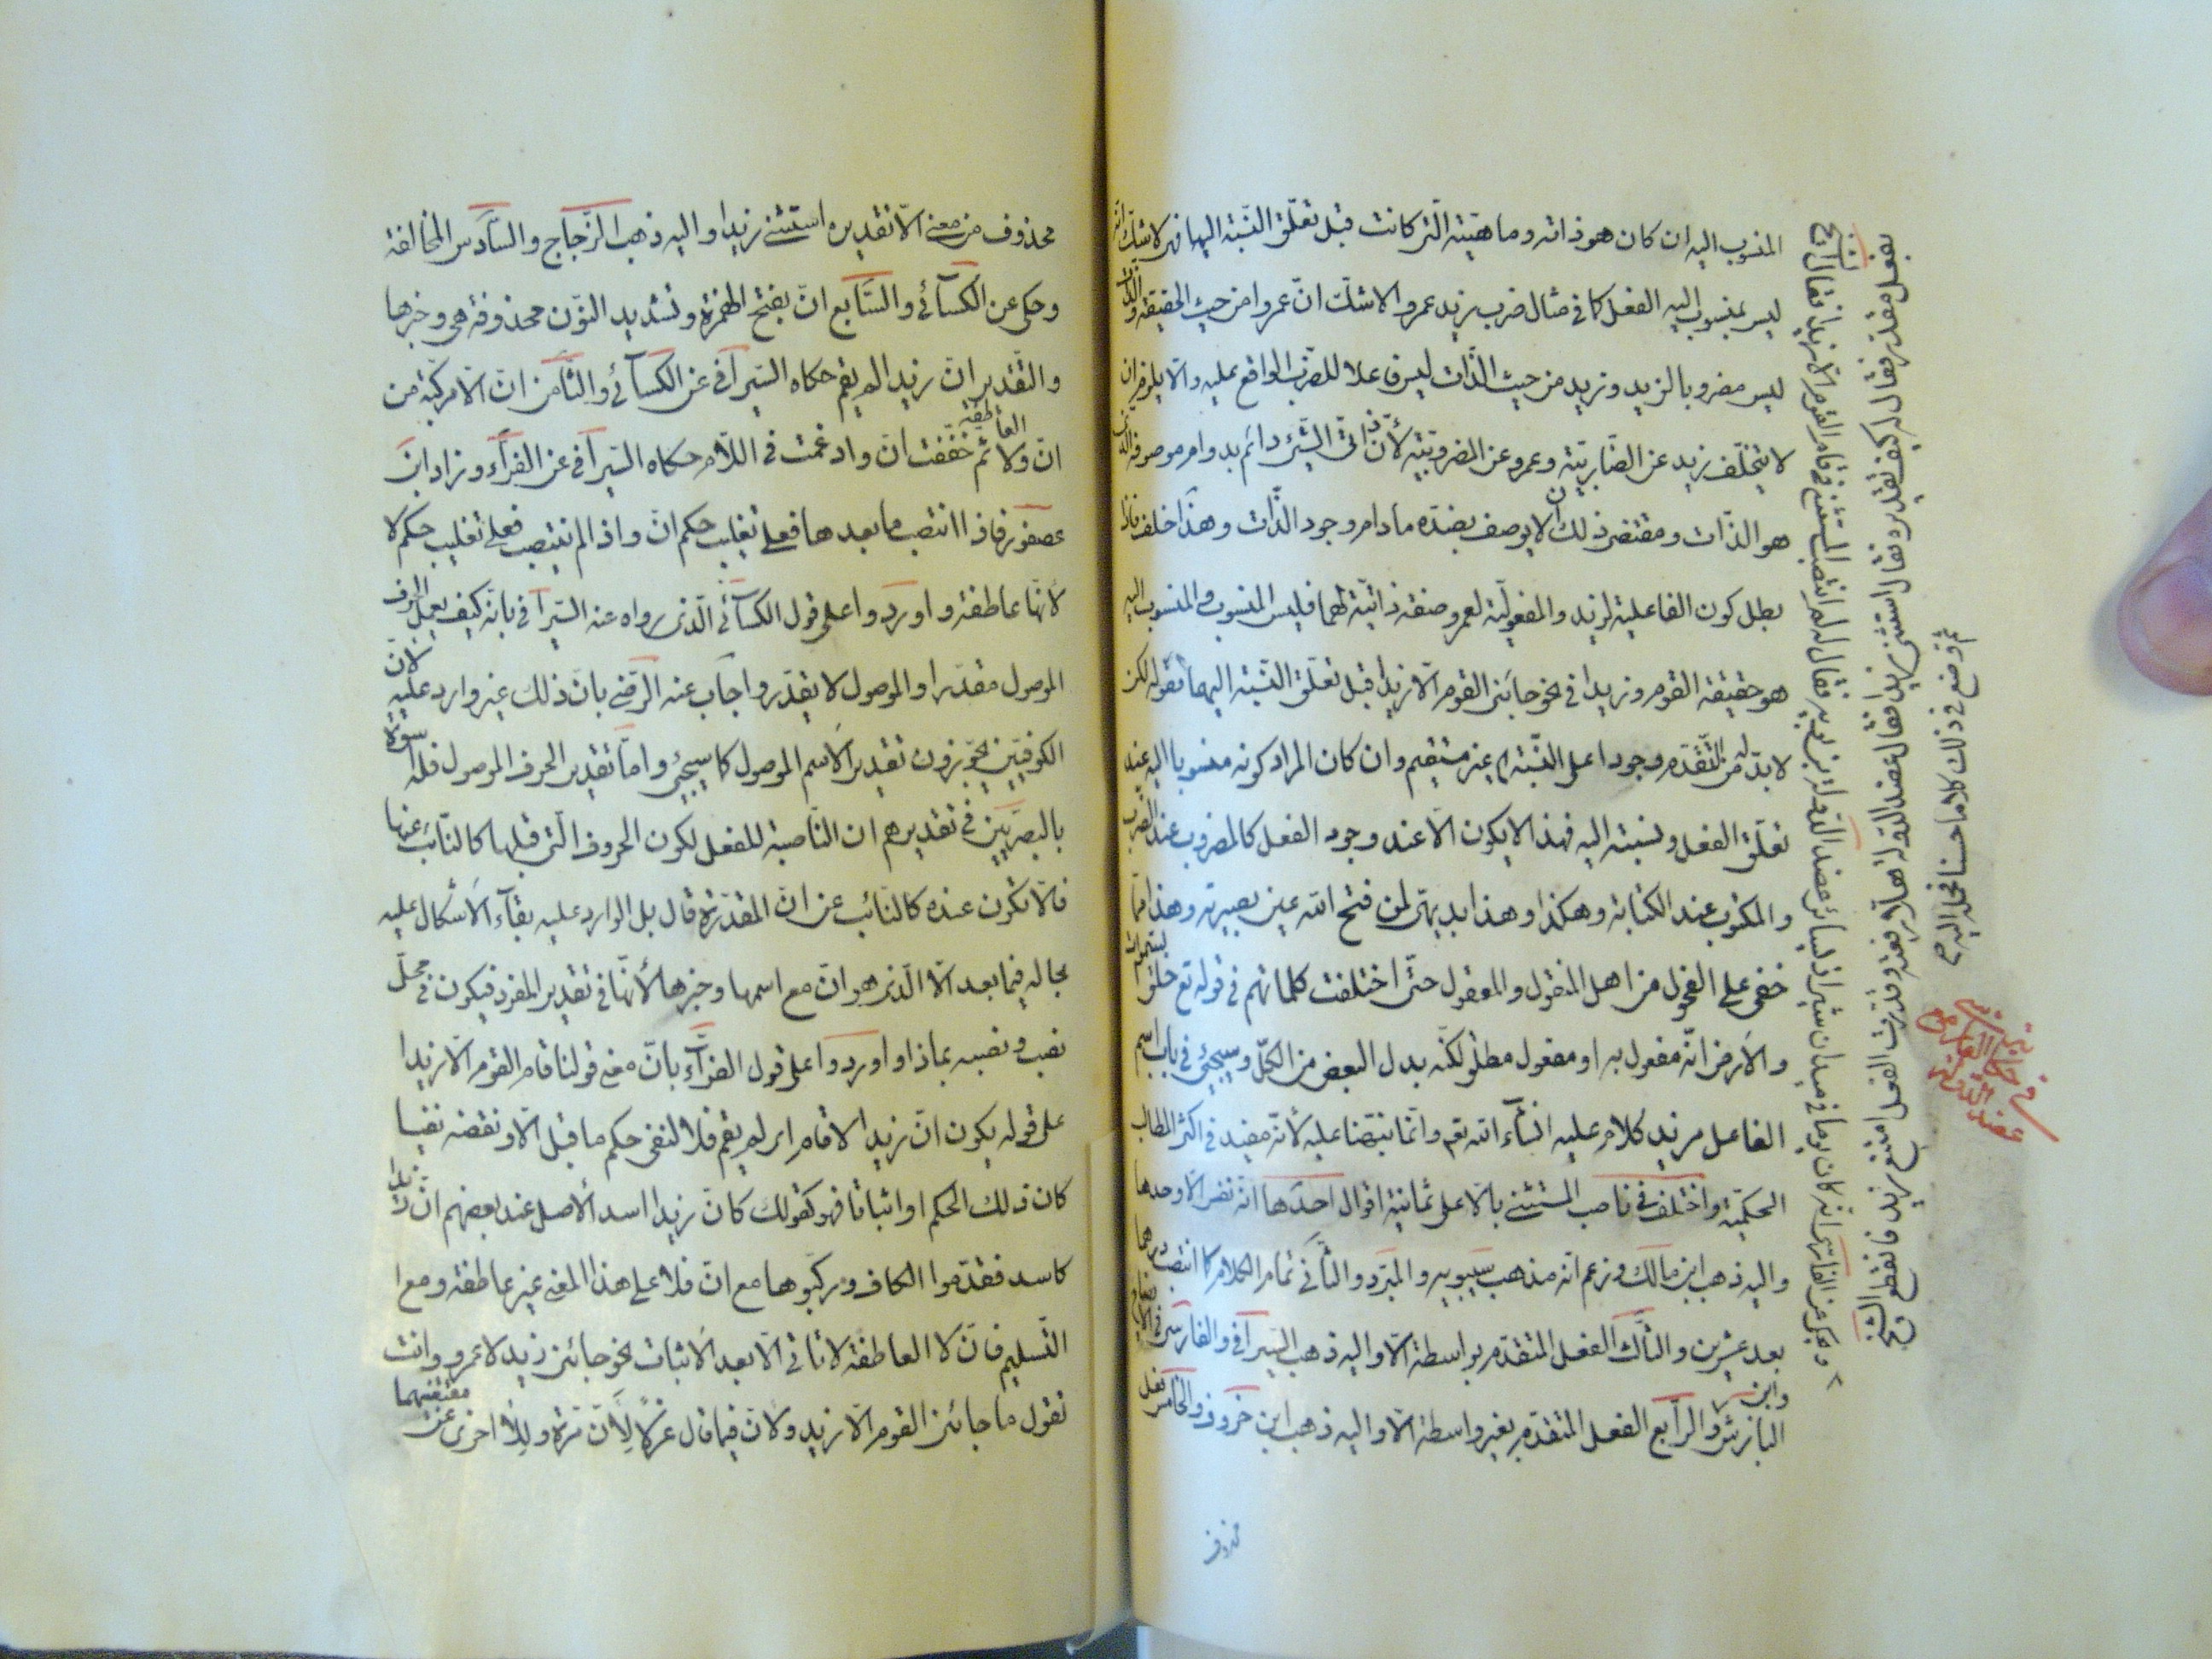 المنسوب اليه ان كان هو ذاته وماهيّته الّتى كانت قبل تعلّق النّسبة اليها فهى لاشكّ انّه
ليس بمنسوب اليه الفعل كما فى مثال ضرب زيد عمروا لاشكّ انّ عمروا من حيث الحقيقة والذّات
ليس مضروبا لزيد وزيد من حيث الذّات ليس فاعلا للضّرب الواقع عليه والّا يلزم ان
لا يتخلّف زيد عن الضّاربيّة وعمرو عن المضروبيّة لأنّ ذاتىّ الشّىء دائم بدوام موصوفه الّذى
هو الذّات ومقتضى ذلك ان لا يوصف بضدّه مادام وجود الذّات وهذا خلف فاذا
بطل كون الفاعلية لزيد والمفعوليّة لعمرو صفة ذاتيّة لهما فليس المنسوب والمنسوب اليه
هو حقيقة القوم وزيدا فى نحو جائنى القوم الّا زيدا قبل تعلّق النّسبة اليهما فقوله لكن
لا بدّ له من التّقدّم وجودا على النّسبة غير مستقيم وان كان المراد كونه منسوبا اليه عند
تعلّق الفعل ونسبته اليه فهذا لا يكون الّا عند وجود الفعل كالمضروب عند الضّرب
والمكتوب عند الكتابة وهكذا وهذا بديهىّ لمن فتح الله عين بصيرته وهذا ممّا
خفى على الفحول من اهل المنقول والمعقول حتّى اختلفت كلماتهم فى قوله تع خلق السّموات
والأرض انّه مفعول به او مفعول مطلق لكنّه بدل البعض من الكلّ وسيجئ فى باب اسم
الفاعل مزيد كلام عليه انشآء الله تع وانّما نبّهنا عليه لأنّه مفيد فى اكثر المطالب
الحكميّة واختلف فى ناصب المستثنى بالّا على ثمانية اقوال احدها انّه نفس الّا وحدها
واليه ذهب ابن مالك وزعم انّه مذهب سيبويه والمبرّد والثّانى تمام الكلام كما انتصب درهما
بعد عشرين والثّالث الفعل المتقدّم بواسطة الّا واليه ذهب السّيرافى والفارسى
وابن
الباذش والرّابع الفعل المتقدّم بغير واسطة الّا واليه ذهب ابن خروف والخامس فعل
محذوف
وحكى عن الفارسى انّه كان يوما فى ميدان شيراز يساير عضد الدّولة بن بويه فقال له لم انتصب المستثنى فى قام القوم الّا زيدا فقال الشّيخ
بفعل مقدّر فقال له كيف تقديره فقال استثنى زيدا فقال عضد الدّولة هلّا رفعته وقدّرت الفعل امتنع زيد فانقطع الشّيخ
ثمّ وضع فى ذلك كلاما حسنا فحمله اليه
عضد الدّولة
محذوف من معنى الّا تقديره استثنى زيدا واليه ذهب الزّجاج والسّادس المخالفة
وحكى عن الكسآئى والسّابع انّ بفتح الهمزة وتشديد النّون محذوفة هى وخبرها
والتّقدير انّ زيدا لم يقم حكاه السّيرافى عن الكسآئى والثّامن انّ الّا مركّبة من
انّ ولا العاطفة ثم خفّفت انّ وادغمت فى اللّام حكاه السّيرافى عن الفرّآء وزاد ابن
عصفور فاذا انتصب ما بعدها فعلى تغليب حكم انّ واذا لم ينتصب فعلى تغليب حكم لا
لأنّها عاطفة واوردوا على قول الكسآئى الّذى رواه عنه السّيرافى بانّه كيف يعمل الحرف
الموصول مقدّرا والموصول لا يقدّر واجاب عنه الرّضى بان ذلك غير وارد عليه لأنّ
الكوفيّين يجوّزون تقدير الاسم الموصول كما سيجئ وامّا تقدير الحرف الموصول فله اسوة
بالبصريّين فى تقديرهم ان النّاصبة للفعل لكون الحروف الّتى قبلها كالنّائب عنها
فالّا تكون عنده كالنّائب عن انّ المقدّرة قال بل الوارد عليه بقآء الاشكال عليه
بحاله فيما بعد الّا الّذى هو انّ مع اسمها وخبرها لأنّها فى تقدير المفرد فيكون فى محلّ
نصب ونصبه بماذا واوردوا على قول الفرّآء بانّ معنى قولنا قام القوم الّا زيدا
على قوله يكون انّ زيدا لا قام اى لم يقم فلا لنفى حكم ما قبل الّا ونقضه نفيا
كان ذلك الحكم او اثباتا فهو كقولك كانّ زيدا اسد الأصل عند بعضهم انّ زيدا
كاسد فقدّموا الكاف وركّبوها مع انّ فلا على هذا المعنى غير عاطفة ومع
التّسليم فانّ لا العاطفة لا تاتى الّا بعد الاثبات نحو جائنى زيد لا عمرو وانت
تقول ما جائنى القوم الّا زيد ولانّ فيما قال عزلا لأنّ مرّة وللا اخرى عن مقتضيهما